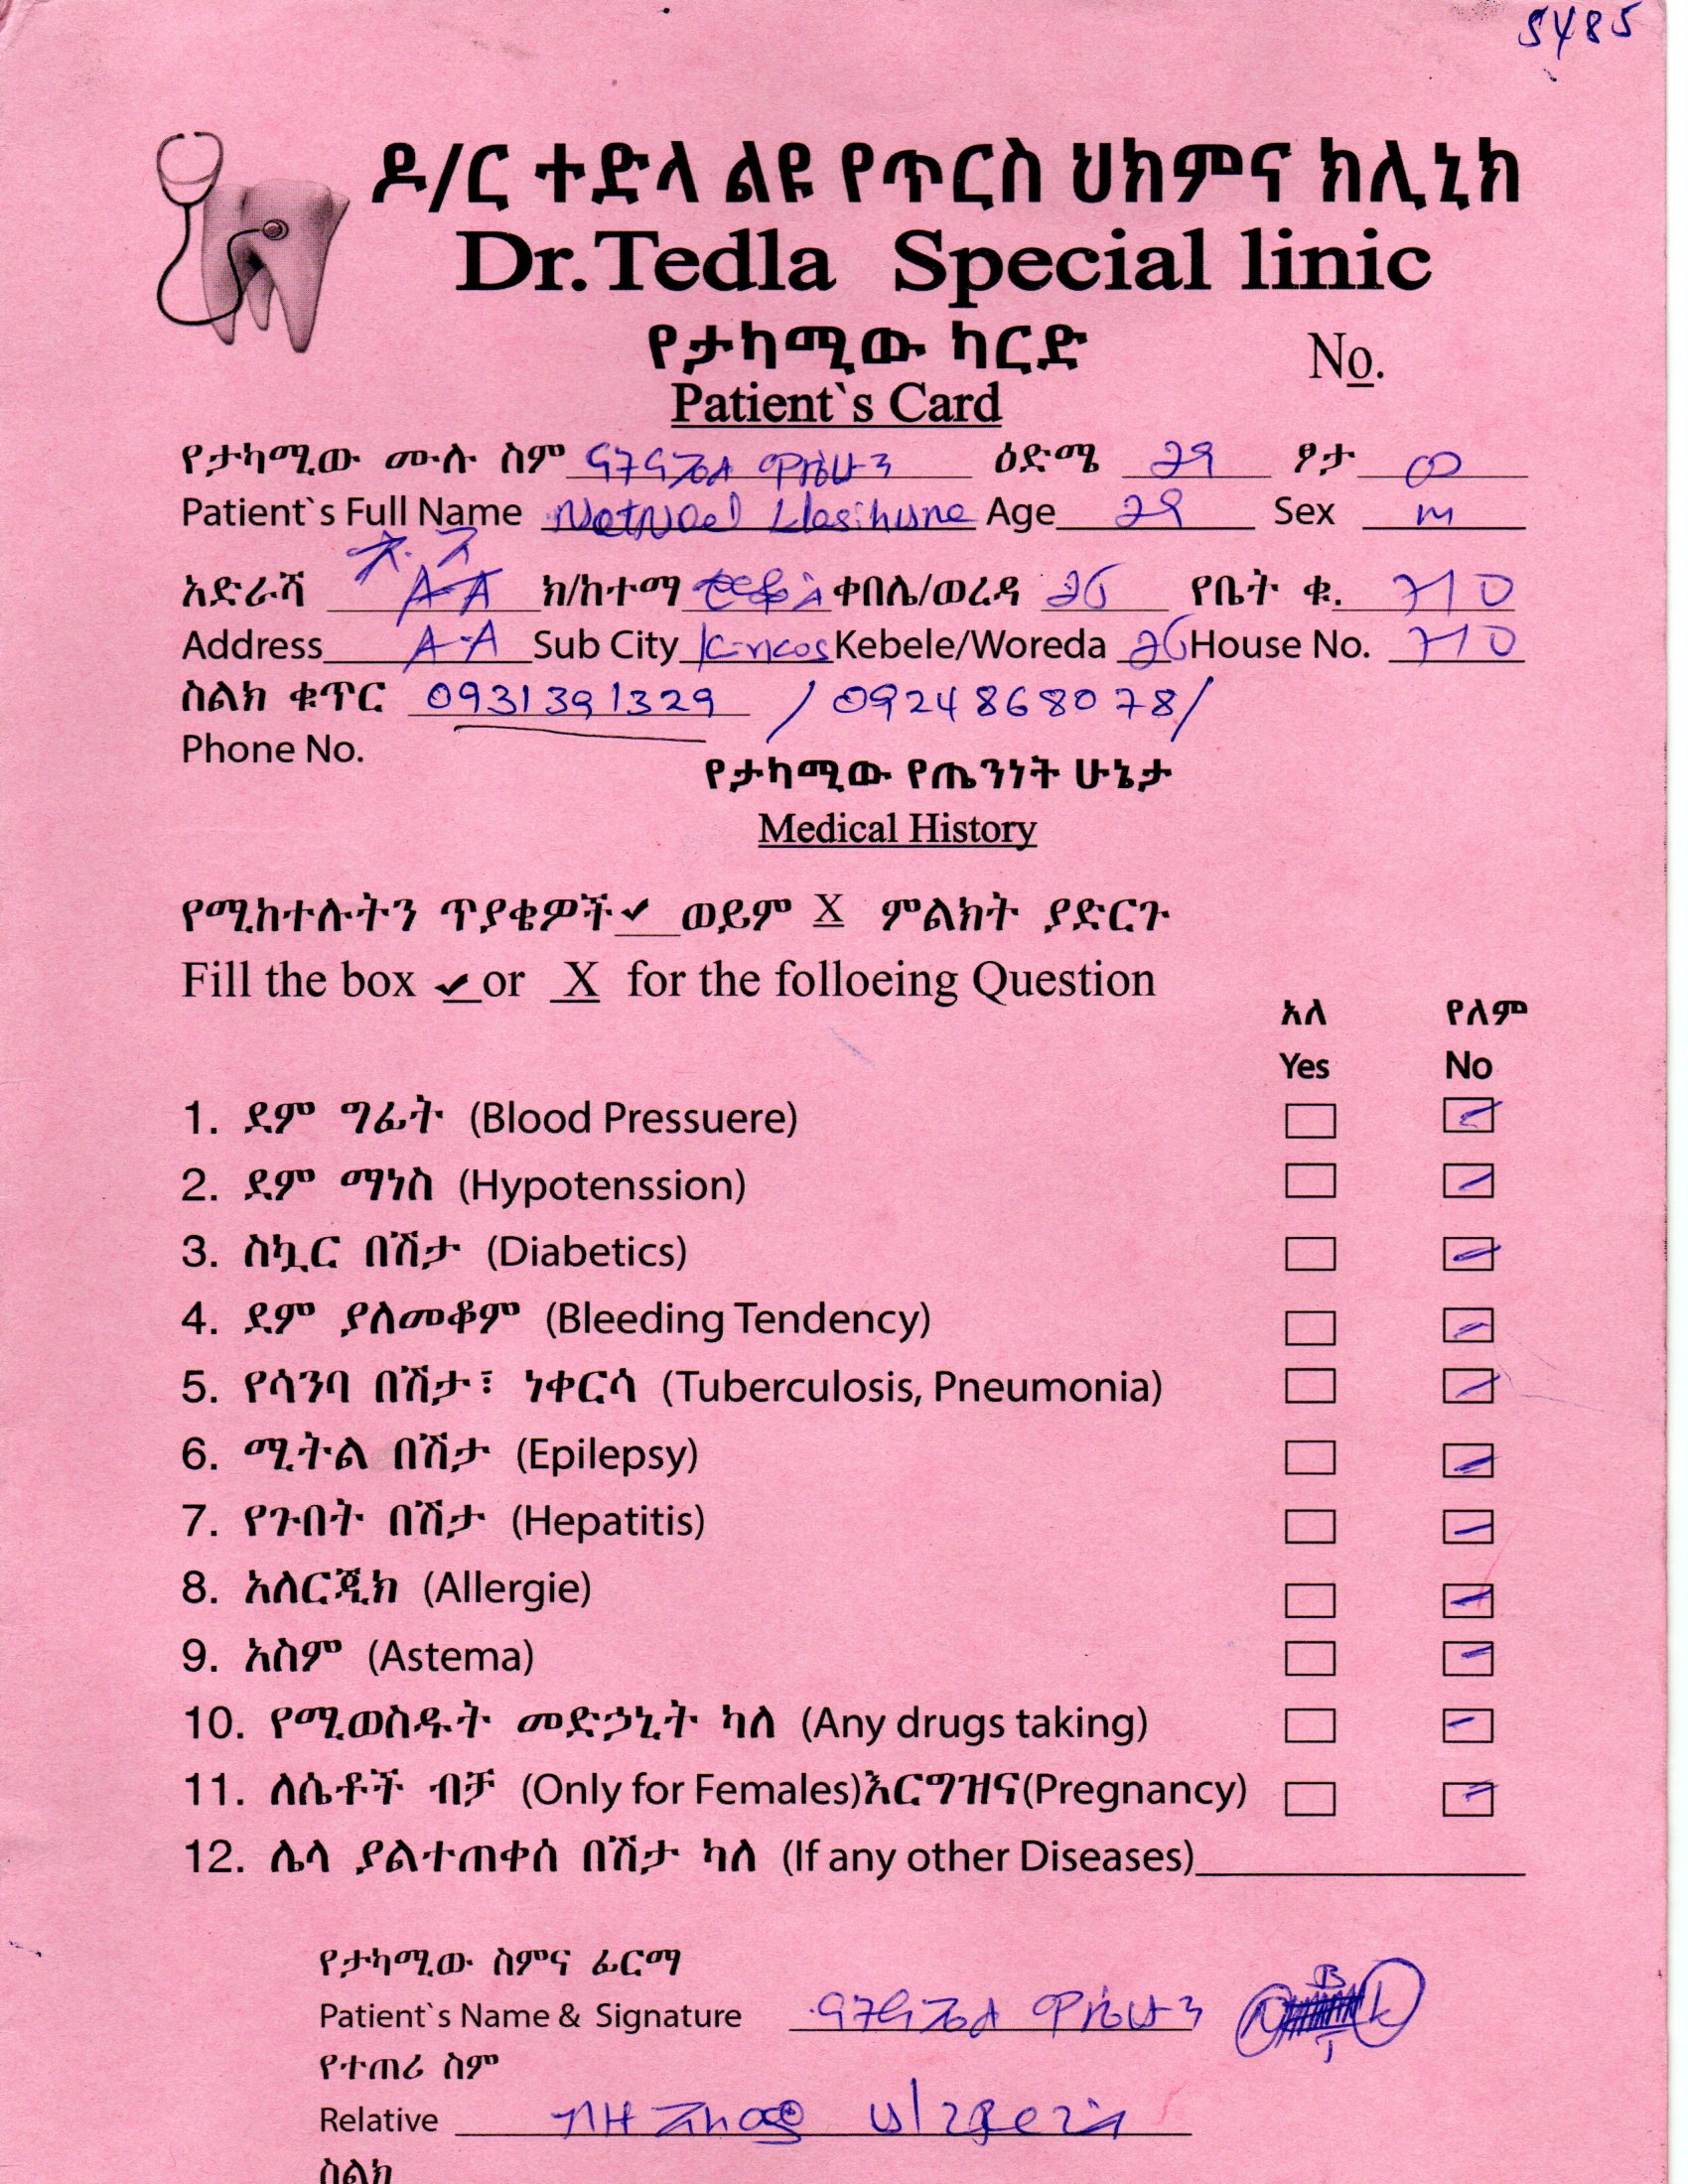 5485
ዶ/ር ተድላ ልዩ የጥርስ ህክምና ክሊኒክ
Dr.Tedla Special linic
የታካሚው ካርድ
No.
Patient`s Card
የታካሚው ሙሉ ስም ዕድሜ 29 ፆታ ወ
Patient`s Full Name Age 29 Sex m
አድራሻ ክ/ከተማ ቀበሌ/ወረዳ 26 የቤት ቁ. 710
Address A-A Sub City Kirkos Kebele/Woreda 26 House No. 710
ስልክ ቁጥር 0931391329 / 0924868078/
Phone No.
የታካሚው የጤንነት ሁኔታ
Medical History
የሚከተሉትን ጥያቄዎች ✔ ወይም X ምልክት ያድርጉ
Fill the box ✔ or X for the folloeing Question
አለ የለም
Yes No
1. ደም ግፊት (Blood Pressuere)
2. ደም ማነስ (Hypotenssion)
3. ስኳር በሽታ (Diabetics)
4. ደም ያለመቆም (Bleeding Tendency)
5. የሳንባ በሽታ፣ ነቀርሳ (Tuberculosis, Pneumonia)
6. ሚትል በሽታ (Epilepsy)
7. የጉበት በሽታ (Hepatitis)
8. አለርጂክ (Allergie)
9. አስም (Astema)
10. የሚወስዱት መድኃኒት ካለ (Any drugs taking)
11. ለሴቶች ብቻ (Only for Females)እርግዝና(Pregnancy)
12. ሌላ ያልተጠቀሰ በሽታ ካለ (If any other Diseases)
የታካሚው ስምና ፊርማ
Patient`s Name & Signature
የተጠሪ ስም
Relative
ስልክ